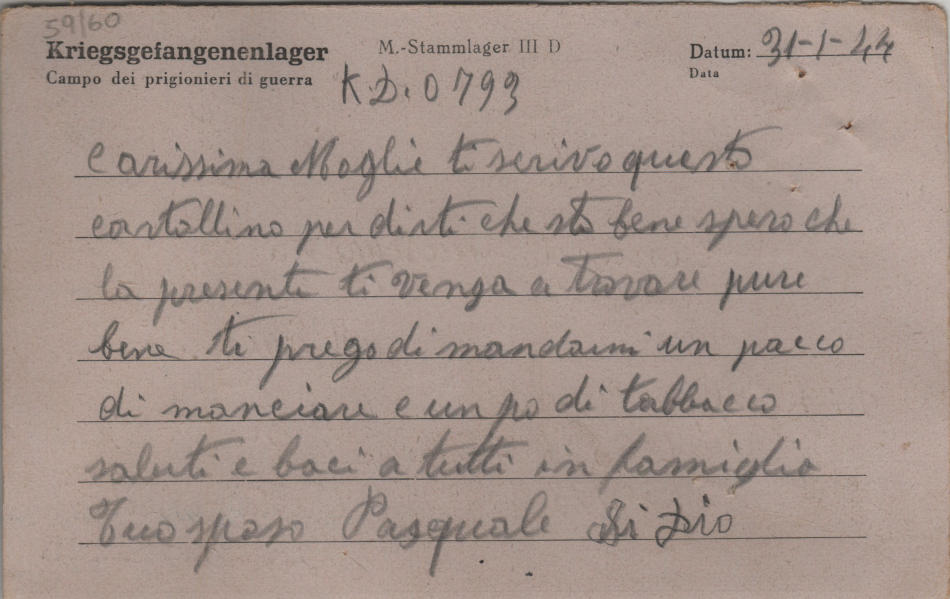 59/60
Kriegsgefangenenlager M.-Stammlager III D Datum: 31-1-44
Campo dei prigionieri di guerra Data
K.D. 0793
Carissima Moglie ti scrivo questo
cartollino per dirti che sto bene spero che
la presente ti venga a trovare pure
bene ti prego di mandarmi un pacco
di manciare e un po di tabbacco
saluti e baci a tutti in famiglia
Tuo sposo Pasquale Di Dio